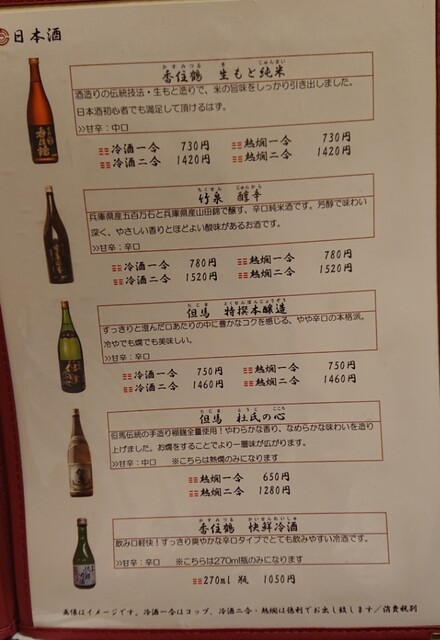 日本酒
かすみつる き じゅんまい
香住鶴 生もと純米
酒造りの伝統技法・生もと造りで、米の旨味をしっかり引き出しました。
日本酒初心者でも満足して頂けるはず。
>>甘辛：中口
冷酒一合 730円 熱燗一合 730円
冷酒二合 1420円 熱燗二合 1420円
ちくせん じゅんから
竹泉 醇辛
兵庫県産五百万石と兵庫県産山田錦で醸す、辛口純米酒です。芳醇で味わい
深く、やさしい香りとほどよい酸味があるお酒です。
>>甘辛：辛口
冷酒一合 780円 熱燗一合 780円
冷酒二合 1520円 熱燗二合 1520円
たじま とくせんほんじょうぞう
但馬 特撰本醸造
すっきりと澄んだ口あたりの中に豊かなコクを感じる、やや辛口の本格派。
冷やでも燗でも美味しい。
>>甘辛：辛口
冷酒一合 750円 熱燗一合 750円
冷酒二合 1460円 熱燗二合 1460円
たじま とうじ こころ
但馬 杜氏の心
但馬伝統の手造り糀麹全量使用！やわらかな香り、なめらかな味わいを造り
上げました。お燗をすることでより一層味が広がります。
>>甘辛：中口 ※こちらは熱燗のみになります
熱燗一合 650円
熱燗二合 1280円
かすみつる かいせんれいしゅ
香住鶴 快鮮冷酒
飲み口軽快！すっきり爽やかな辛口タイプでとても飲みやすい冷酒です。
>>甘辛：辛口 ※こちらは270ml瓶のみになります
270ml 1瓶 1050円
画像はイメージです。冷酒一合はコップ、冷酒二合・熱燗は徳利でお出し致します／消費税別